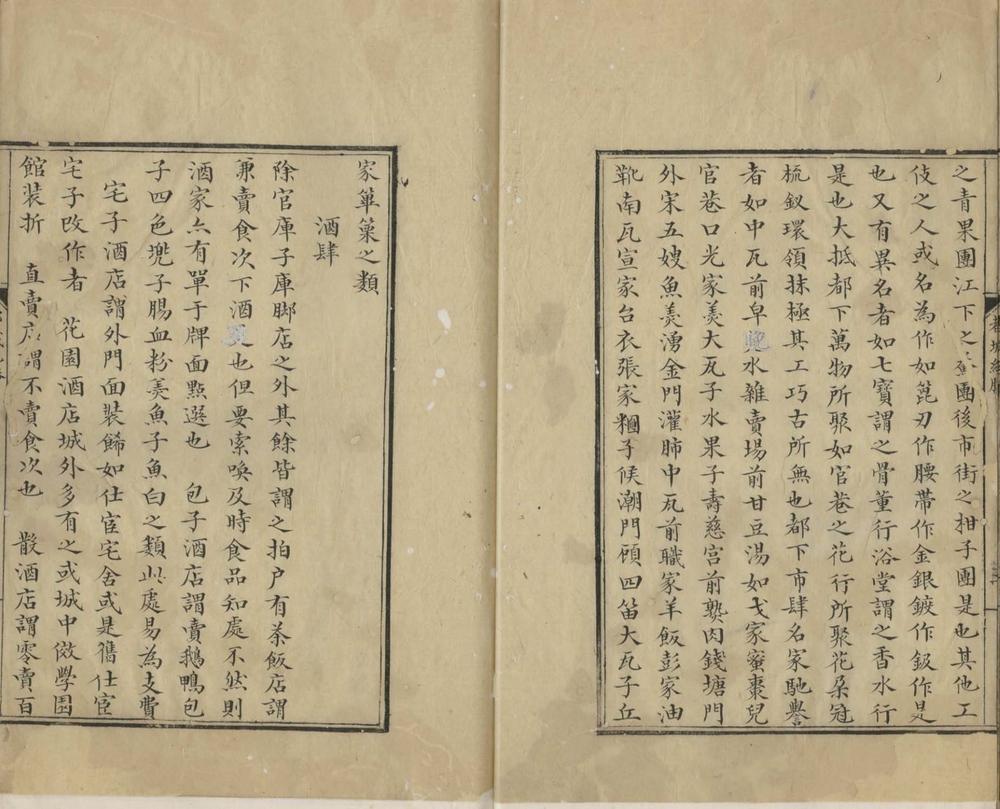 之青果團江下之鮝團後市街之柑子團是也其他工
伎之人或名為作如箆刃作腰帶作金銀鍍作鈒作是
也又有異名者如七寶謂之骨董行浴堂謂之香水行
是也大抵都下萬物所聚如官巷之花行所聚花朶冠
梳釵環領抹極其工巧古所無也都下市肆名家馳譽
者如中瓦前皁兒水雜賣場前甘豆湯如戈家蜜棗兒
官巷口光家羹大瓦子水果子壽慈宮前熟肉錢塘門
外宋五嫂魚羮湧金門灌肺中瓦前職家羊飯彭家油
靴南瓦宣家台衣張家糰子候潮門顧四笛大瓦子丘
家篳篥之類
酒肆
除官庫子庫脚店之外其餘皆謂之拍户有茶飯店謂
兼賣食次下酒是也但要索喚及時食品知處不然則
酒家亦有單于牌面點選也 包子酒店謂賣鵝鴨包
子四色兠子腸血粉羮魚子魚白之類此處易為支費
宅子酒店謂外門面裝餙如仕宦宅舍或是舊仕宦
宅子改作者 花園酒店城外多有之或城中傚學園
館裝折 直賣店謂不賣食次也 散酒店謂零賣百